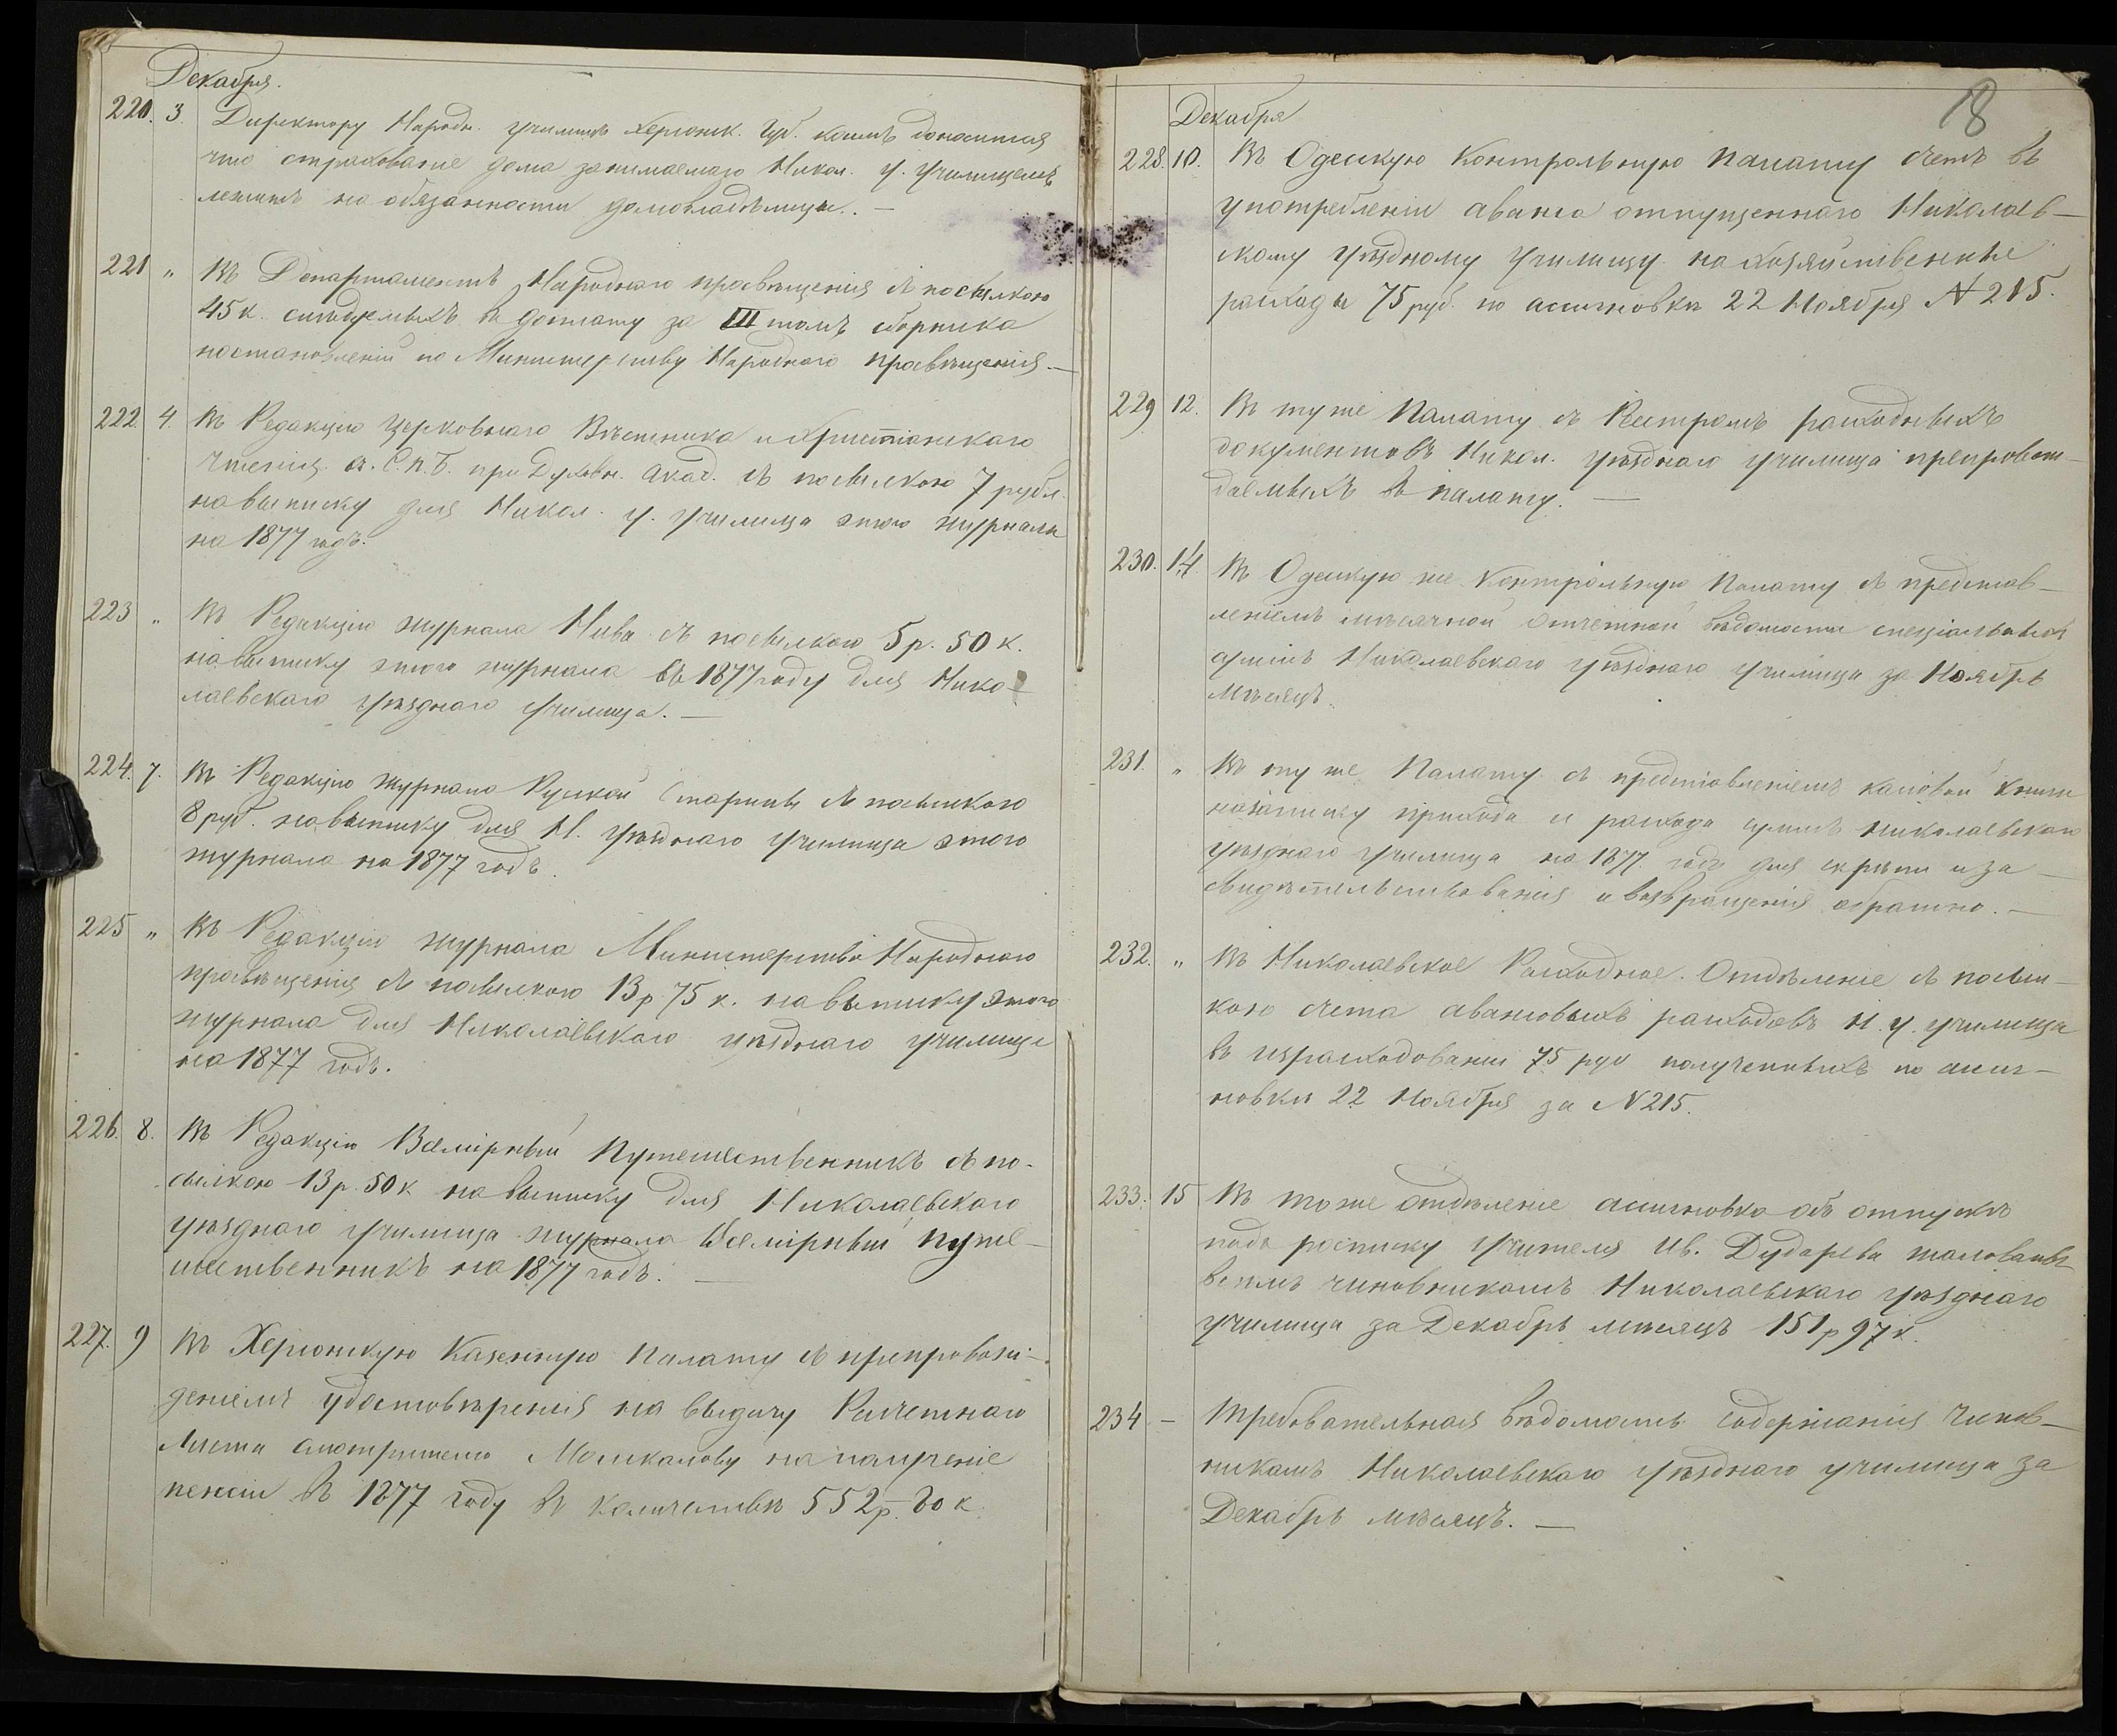 Декабря.
220. 3. Директору Народн. училищъ Херсонск. Губ. коимъ доносится
что страхованіе дома занимаемаго Никол. у. Училищемъ
лежитъ на обязанности домовладѣлицы. —
221 „ Въ Департаментъ Народнаго просвѣщенія съ посылкою
45 к. слѣдуемыхъ въ доплату за III томъ сборника
постановленій по Министерству Народнаго просвѣщенія. —
222. 4. Въ Редакцію Церковнаго Вѣстника и Христіанскаго
чтенія С.П.Б. при Духовн. Акад. съ посылкою 7 рубл.
на выписку для Никол. у. училища этого журнала
на 1877 годъ.
223 „ Въ Редакцію журнала Нива съ посылкою 5 р. 50 к.
на выписку этого журнала въ 1877 году для Нико-
лаевскаго уѣзднаго училища. —
224. 7. Въ Редакцію журнала Русской Старины съ посылкою
8 руб. на выписку для Н. уѣзднаго училища этого
журнала на 1877 годъ.
225 „ Въ Редакцію журнала Министерства Народнаго
просвѣщенія съ посылкою 13 р. 75 к. на выписку этого
журнала для Николаевскаго уѣзднаго училища
на 1877 годъ.
226. 8. Въ Редакцію Всемірный Путешественникъ съ по-
сылкою 13 р. 50 к. на выписку для Николаевскаго
уѣзднаго училища журнала Всемірный путе-
шественникъ на 1877 годъ. —
227. 9 Въ Херсонскую Казенную Палату съ препровож-
деніемъ удостовѣренія на выдачу Расчетнаго
Листа смотрителю Москалову на полученіе
пенсіи въ 1877 году въ количествѣ 552 р. 80 к.
18
Декабря
228. 10. Въ Одесскую Контрольную палату счетъ въ
употребленіи аванса отпущеннаго Николаев-
скому уѣздному училищу на хозяйственные
расходы 75 руб. по ассигновкѣ 22 Ноября № 215.
229 12. Въ туже Палату съ Реестромъ расходныхъ
документовъ Никол. уѣзднаго училища препровож-
даемыхъ въ палату. —
230. 14. Въ Одесскую же Контрольную Палату съ представ-
леніемъ мѣсячной отчетной вѣдомости спеціальныхъ
суммъ Николаевскаго уѣзднаго училища за Ноябрь
мѣсяцъ.
231. „ Въ ту же Палату съ представленіемъ кассовой книги
на записку прихода и расхода суммъ николаевскаго
уѣзднаго училища на 1877 годъ для скрѣпы и за-
свидѣтельствованія и возвращенія обратно. —
232. „ Въ Николаевское Расходное Отдѣленіе съ посыл-
кою счета авансовыхъ расходовъ Н. у. училища
въ израсходованіи 75 руб полученныхъ по ассиг-
новкѣ 22 Ноября за № 215.
233. 15 Въ тоже отдѣленіе ассигновка объ отпускѣ
подъ росписку Учителя Ив. Дударева жалованье
всѣмъ чиновникамъ Николаевскаго уѣзднаго
училища за Декабрь мѣсяцъ 151 р 97 к.
234 — Требовательная вѣдомость содержанія чинов-
никамъ Николаевскаго уѣзднаго училища за
Декабрь мѣсяцъ. —